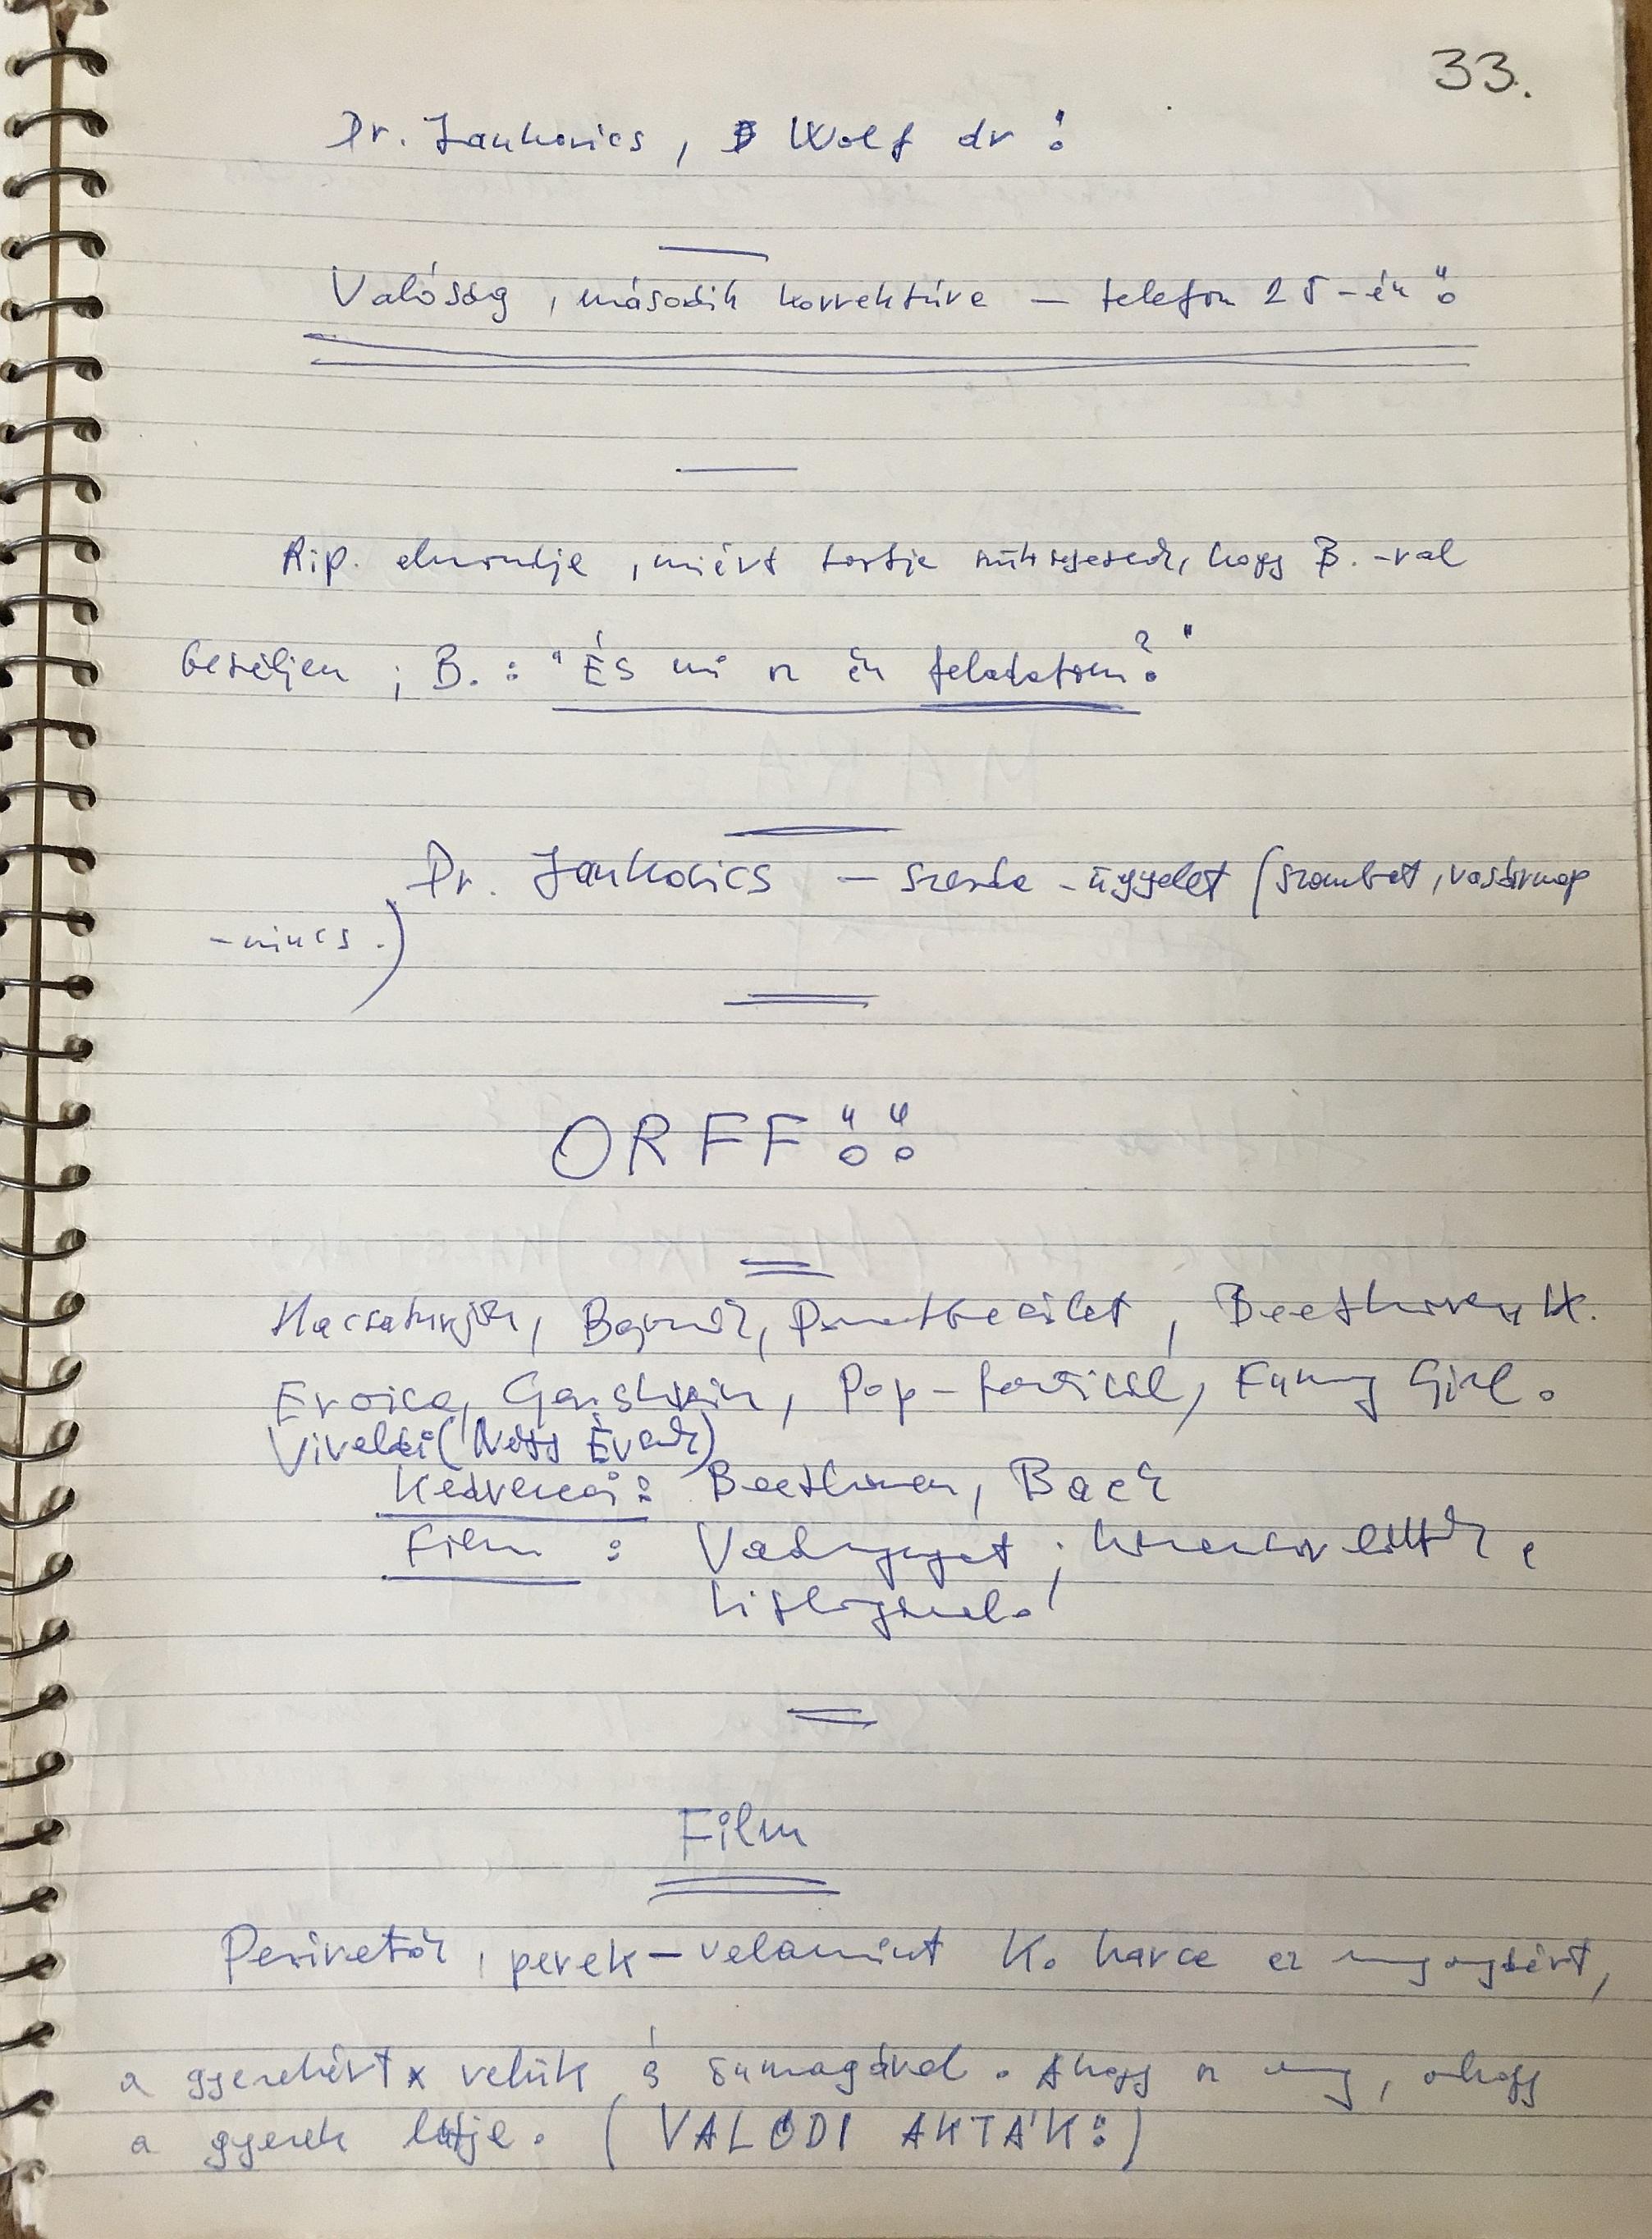 33.
Dr. Jankovics, Wolf dr!
Valóság, második korrektúra – telefon 25-én!!
Rip. elmondja, miért tartja szükségesnek, hogy B.-val
beszéljen; B.: "És mi az én feladatom?"
Dr. Jankovics – szerda-ügyelet (szombat, vasárnap
-nincs.)
ORFF!!!!
Hacsaturján, Bajazzók, Beethoven IX.
Eroica, Gershwin, Pop-fesztivál, Funny Girl.
Vivaldi (Négy Évszak)
Kedvencei: Beethoven, Bach
Film: Vadnyugat;
Film
perek – valamint K. harca az anyagiért,
a gyerekért x velük és önmagával. Ahogy az, ahogy
a gyerek látja. (VALÓDI AKTÁK!)